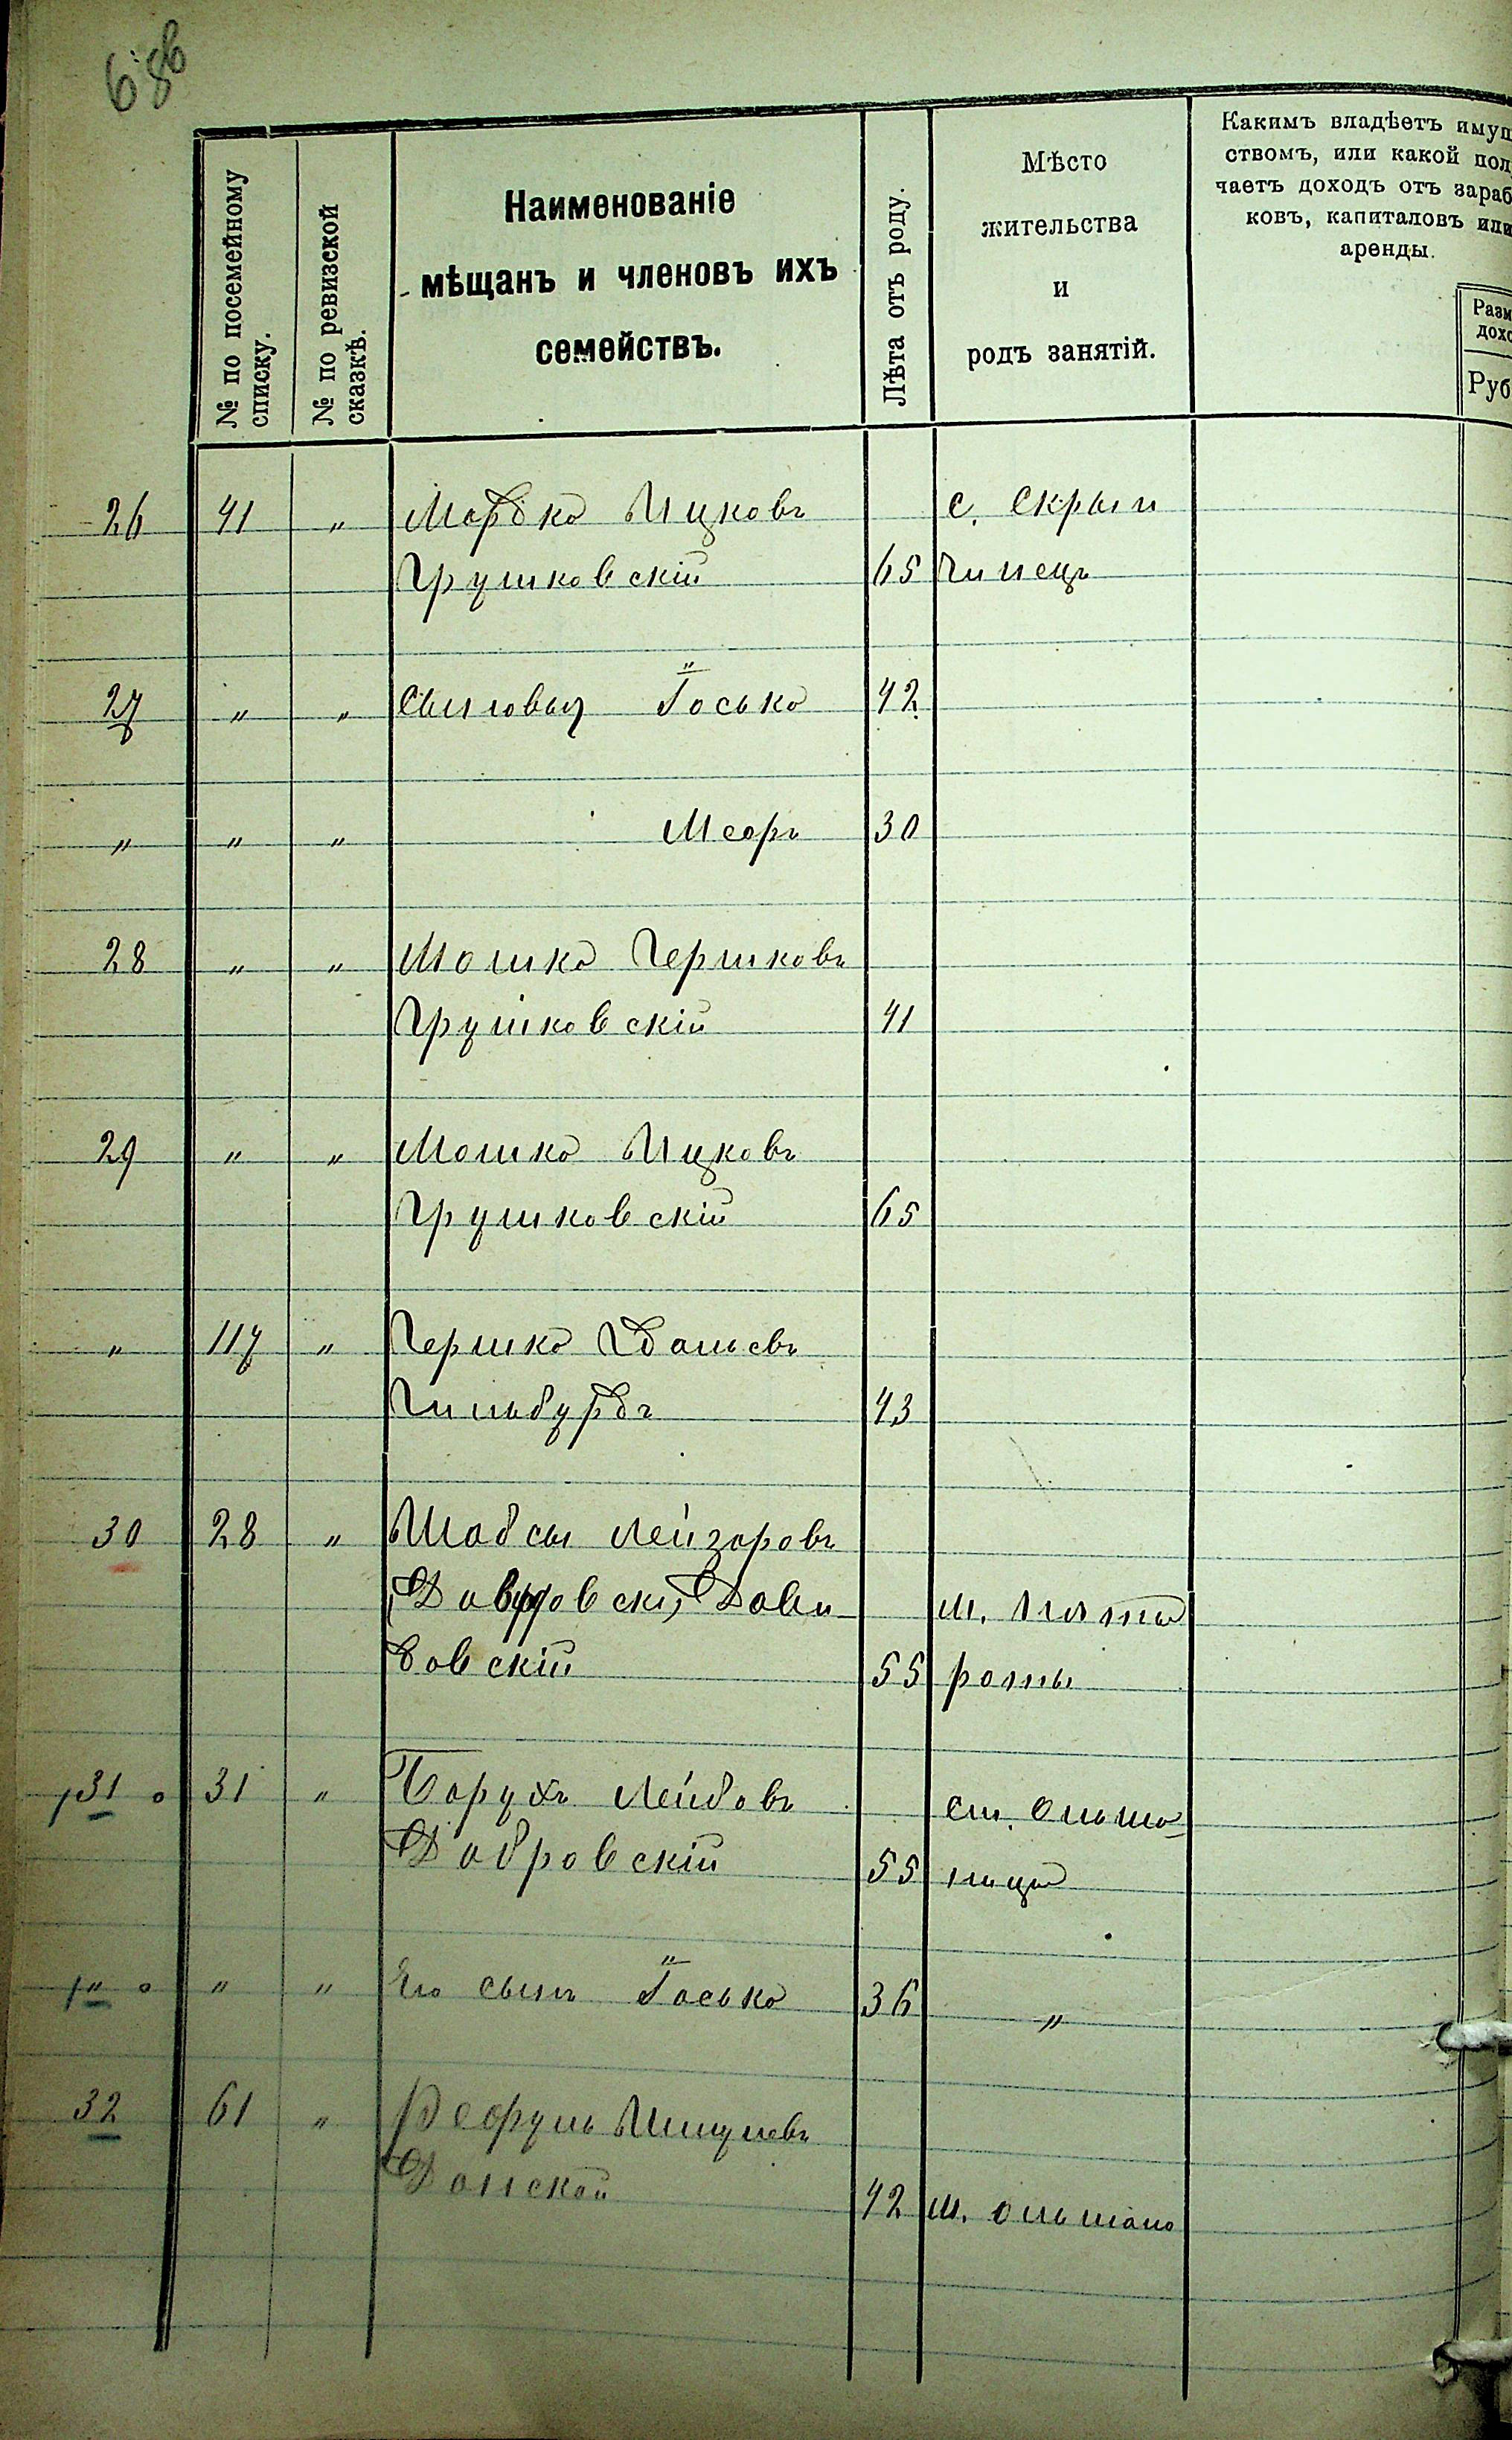 68б
№ по посемейному списку.
№ по ревизской сказкѣ.
Наименованіе
мѣщанъ и членовъ ихъ
семействъ.
Лѣта отъ роду.
Мѣсто
жительства
и
родъ занятій.
Какимъ владѣетъ имущ
ствомъ, или какой пол
чаетъ доходъ отъ зараб
ковъ, капиталовъ или
аренды.
Разм
дохо
Руб
26 41 " Мордко Ицковъ с. Скрып
Грушковскій 65 чинецъ
27 " " Сыновья Іосько 42
" " " Меоръ 30
28 " " Мошко Гершковъ
Грушковскій 41
29 " " Мошко Ицковъ
Грушковскій 65
" 117 " Гершко
Гильбурдъ 43
30 28 " Шабсы Лейзоровъ
Дави м.
довскій 55
31 31 " Борухъ Лейбовъ ст. Ольша-
Добровскій 55 ница
" " " Его сынъ Іосько 36 "
32 61 "
Донской 42 м. Ольшано